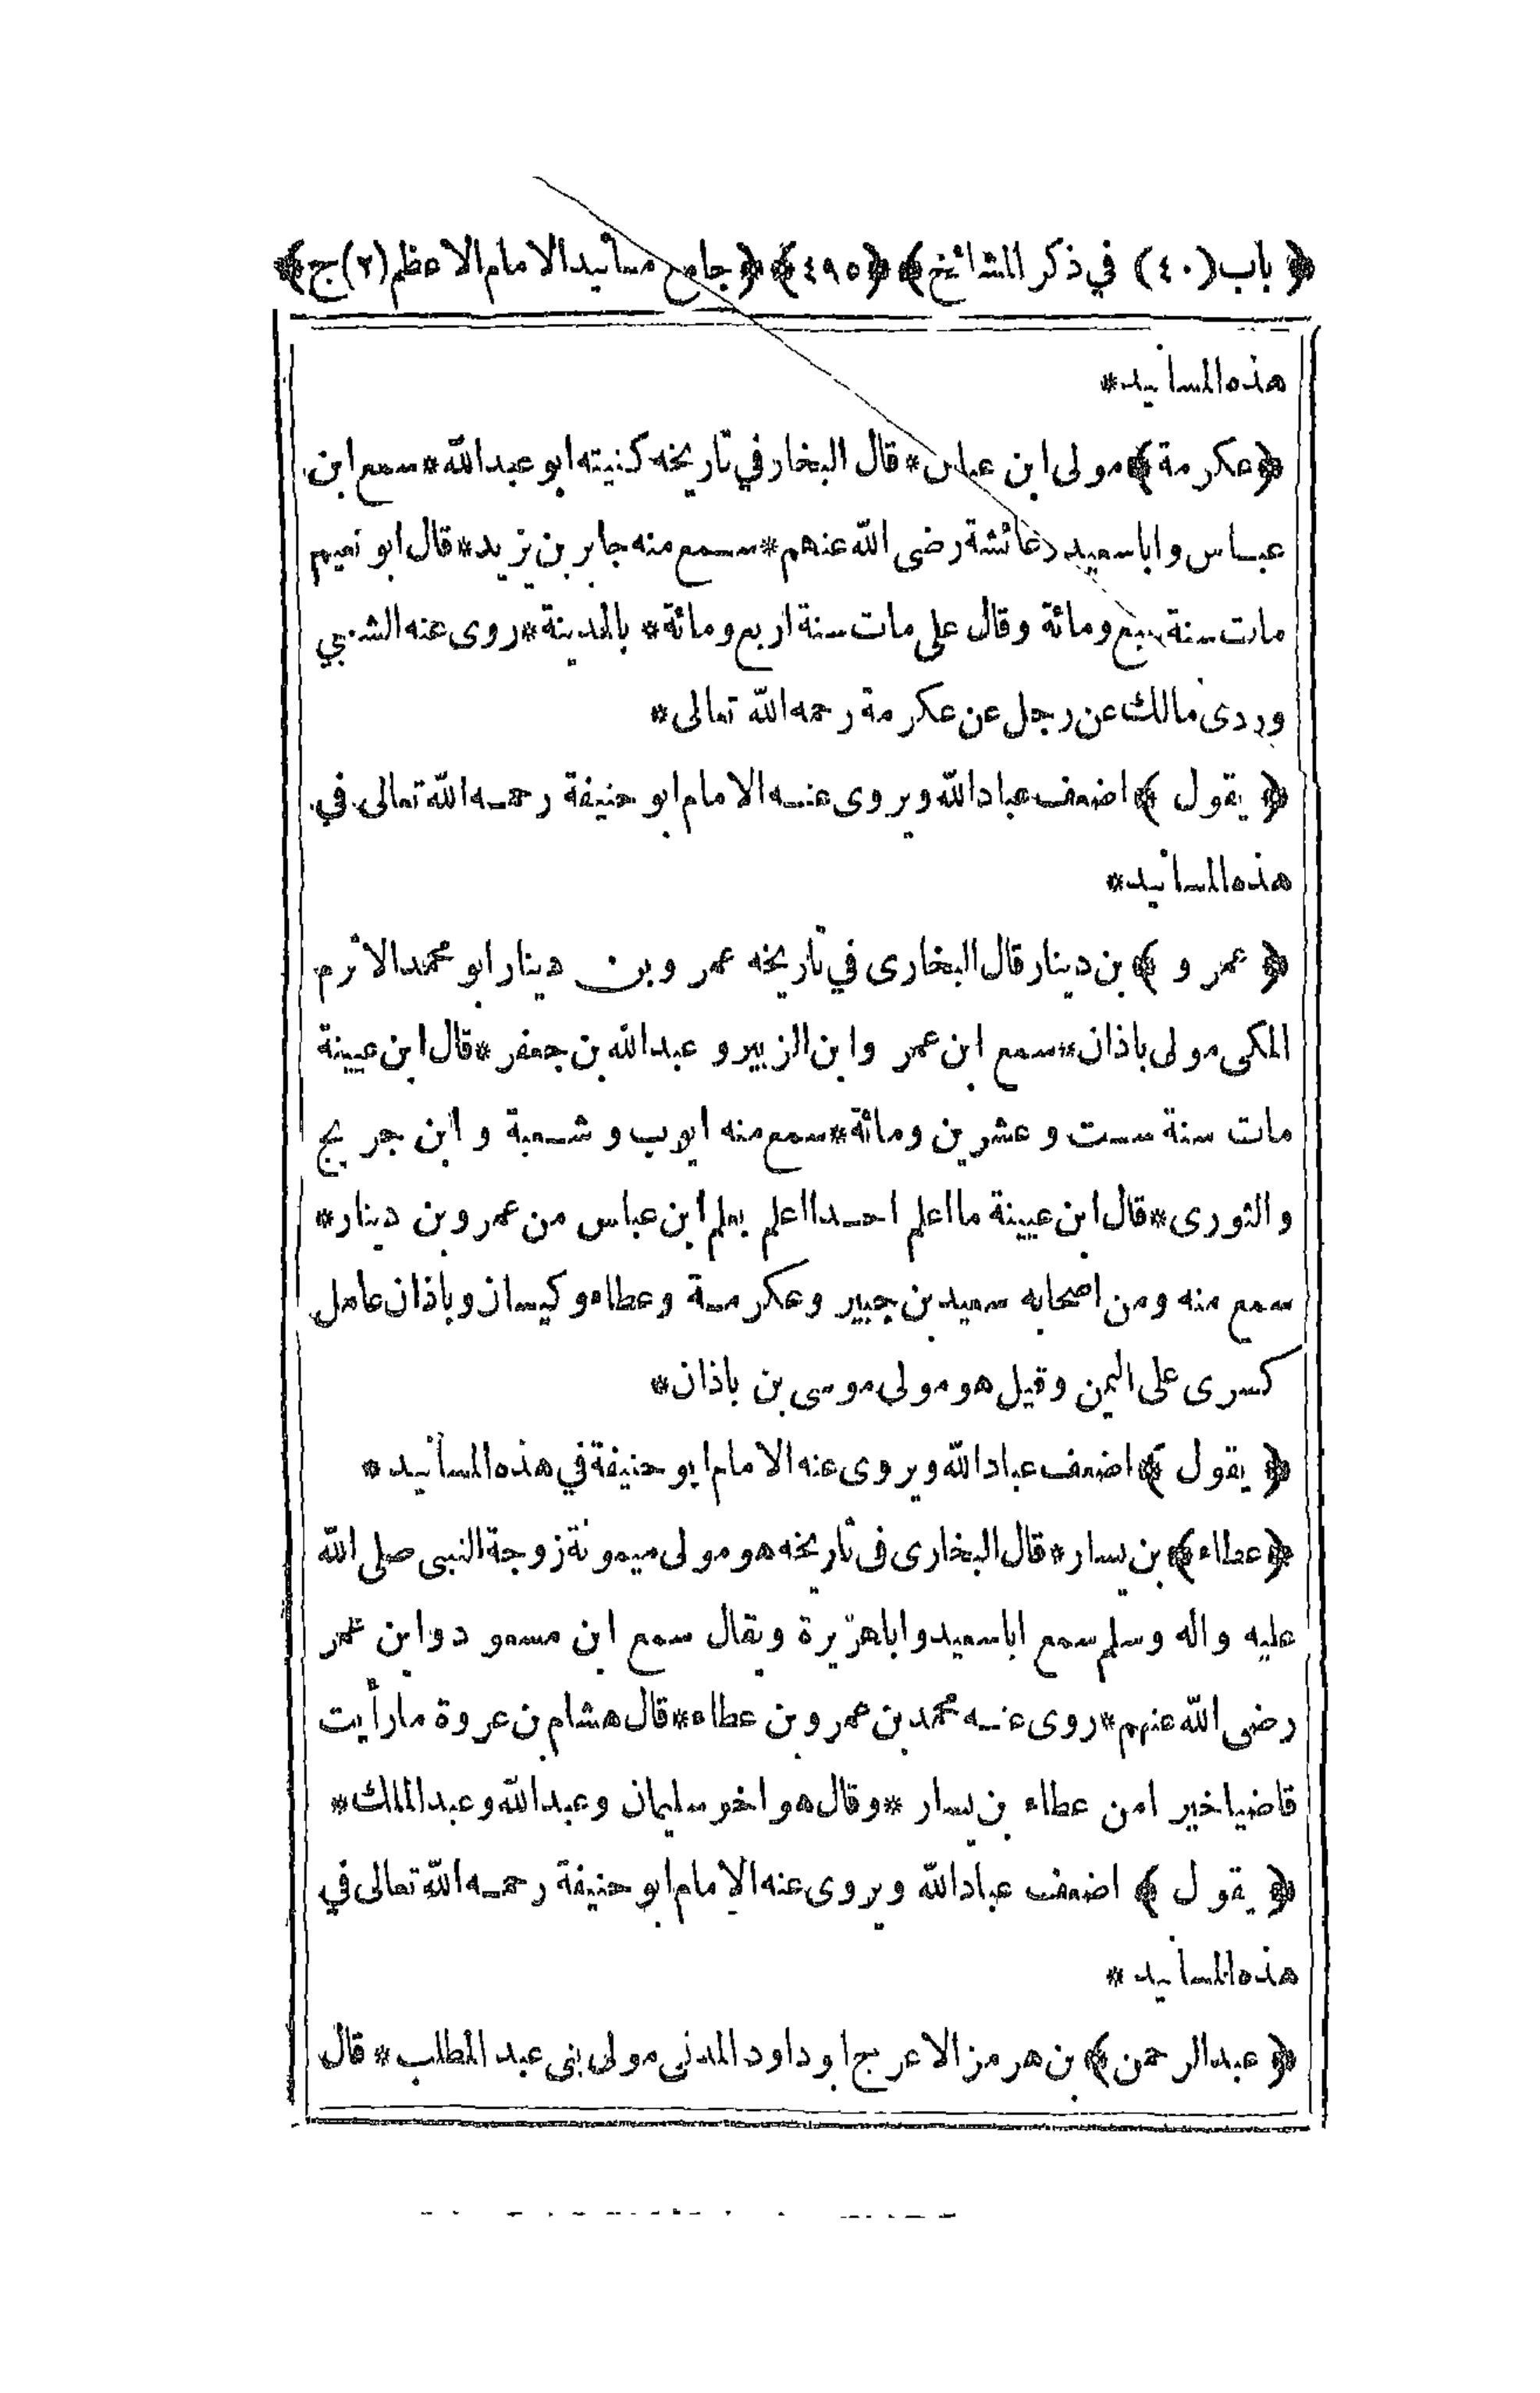 ﴿باب (٤٠) في ذكر المشائخ﴾ ﴿٤٩٥﴾ ﴿جامع مسانيد الامام الاعظم (٢) ج﴾
هذه المسانيد*
﴿عكرمة﴾ مولى ابن عباس* قال البخار في تاريخه كنيته ابو عبد الله* سمع ابن
عباس و ابا سعيد وعائشة رضى الله عنهم* سمع منه جابر بن زيد* قال ابو نعيم
مات سنة سبع ومائة وقال على مات سنة اربع ومائة* بالمدينة* روى عنه الشعبي
وروى مالك عن رجل عن عكرمة رحمه الله تعالى*
﴿يقول﴾ اضعف عباد الله ويروى عنه الامام ابو حنيفة رحمه الله تعالى في
هذه المسانيد*
﴿عمرو﴾ بن دينار قال البخارى في تاريخه عمرو بن دينار ابو محمد الاثرم
المكى مولى باذان* سمع ابن عمر وابن الزبير و عبد الله بن جعفر* قال ابن عيينة
مات سنة ست و عشرين ومائة* سمع منه ايوب و شعبة و ابن جريج
والثورى* قال ابن عيينة ما اعلم احدا اعلم بعلم ابن عباس من عمرو بن دينار*
سمع منه ومن اصحابه سعيد بن جبير وعكرمة وعطاء وكيسان وباذان عامل
كسرى على اليمن وقيل هو مولى موسى بن باذان*
﴿يقول﴾ اضعف عباد الله ويروى عنه الامام ابو حنيفة في هذه المسانيد*
﴿عطاء﴾ بن يسار* قال البخارى فى تاريخه هو مولى ميمونة زوجة النبى صلى الله
عليه واله وسلم سمع ابا سعيد وابا هريرة ويقال سمع ابن مسعود وابن عمر
رضى الله عنهم* روى عنه محمد بن عمرو بن عطاء* قال هشام بن عروة ما رأيت
قاضيا خيرا من عطاء بن يسار* وقال هو اخو سليمان وعبد الله وعبد الملك*
﴿يقول﴾ اضعف عباد الله ويروى عنه الامام ابو حنيفة رحمه الله تعالى في
هذه المسانيد*
﴿عبد الرحمن﴾ بن هرمز الاعرج ابو داود المدنى مولى بنى عبد المطلب* قال